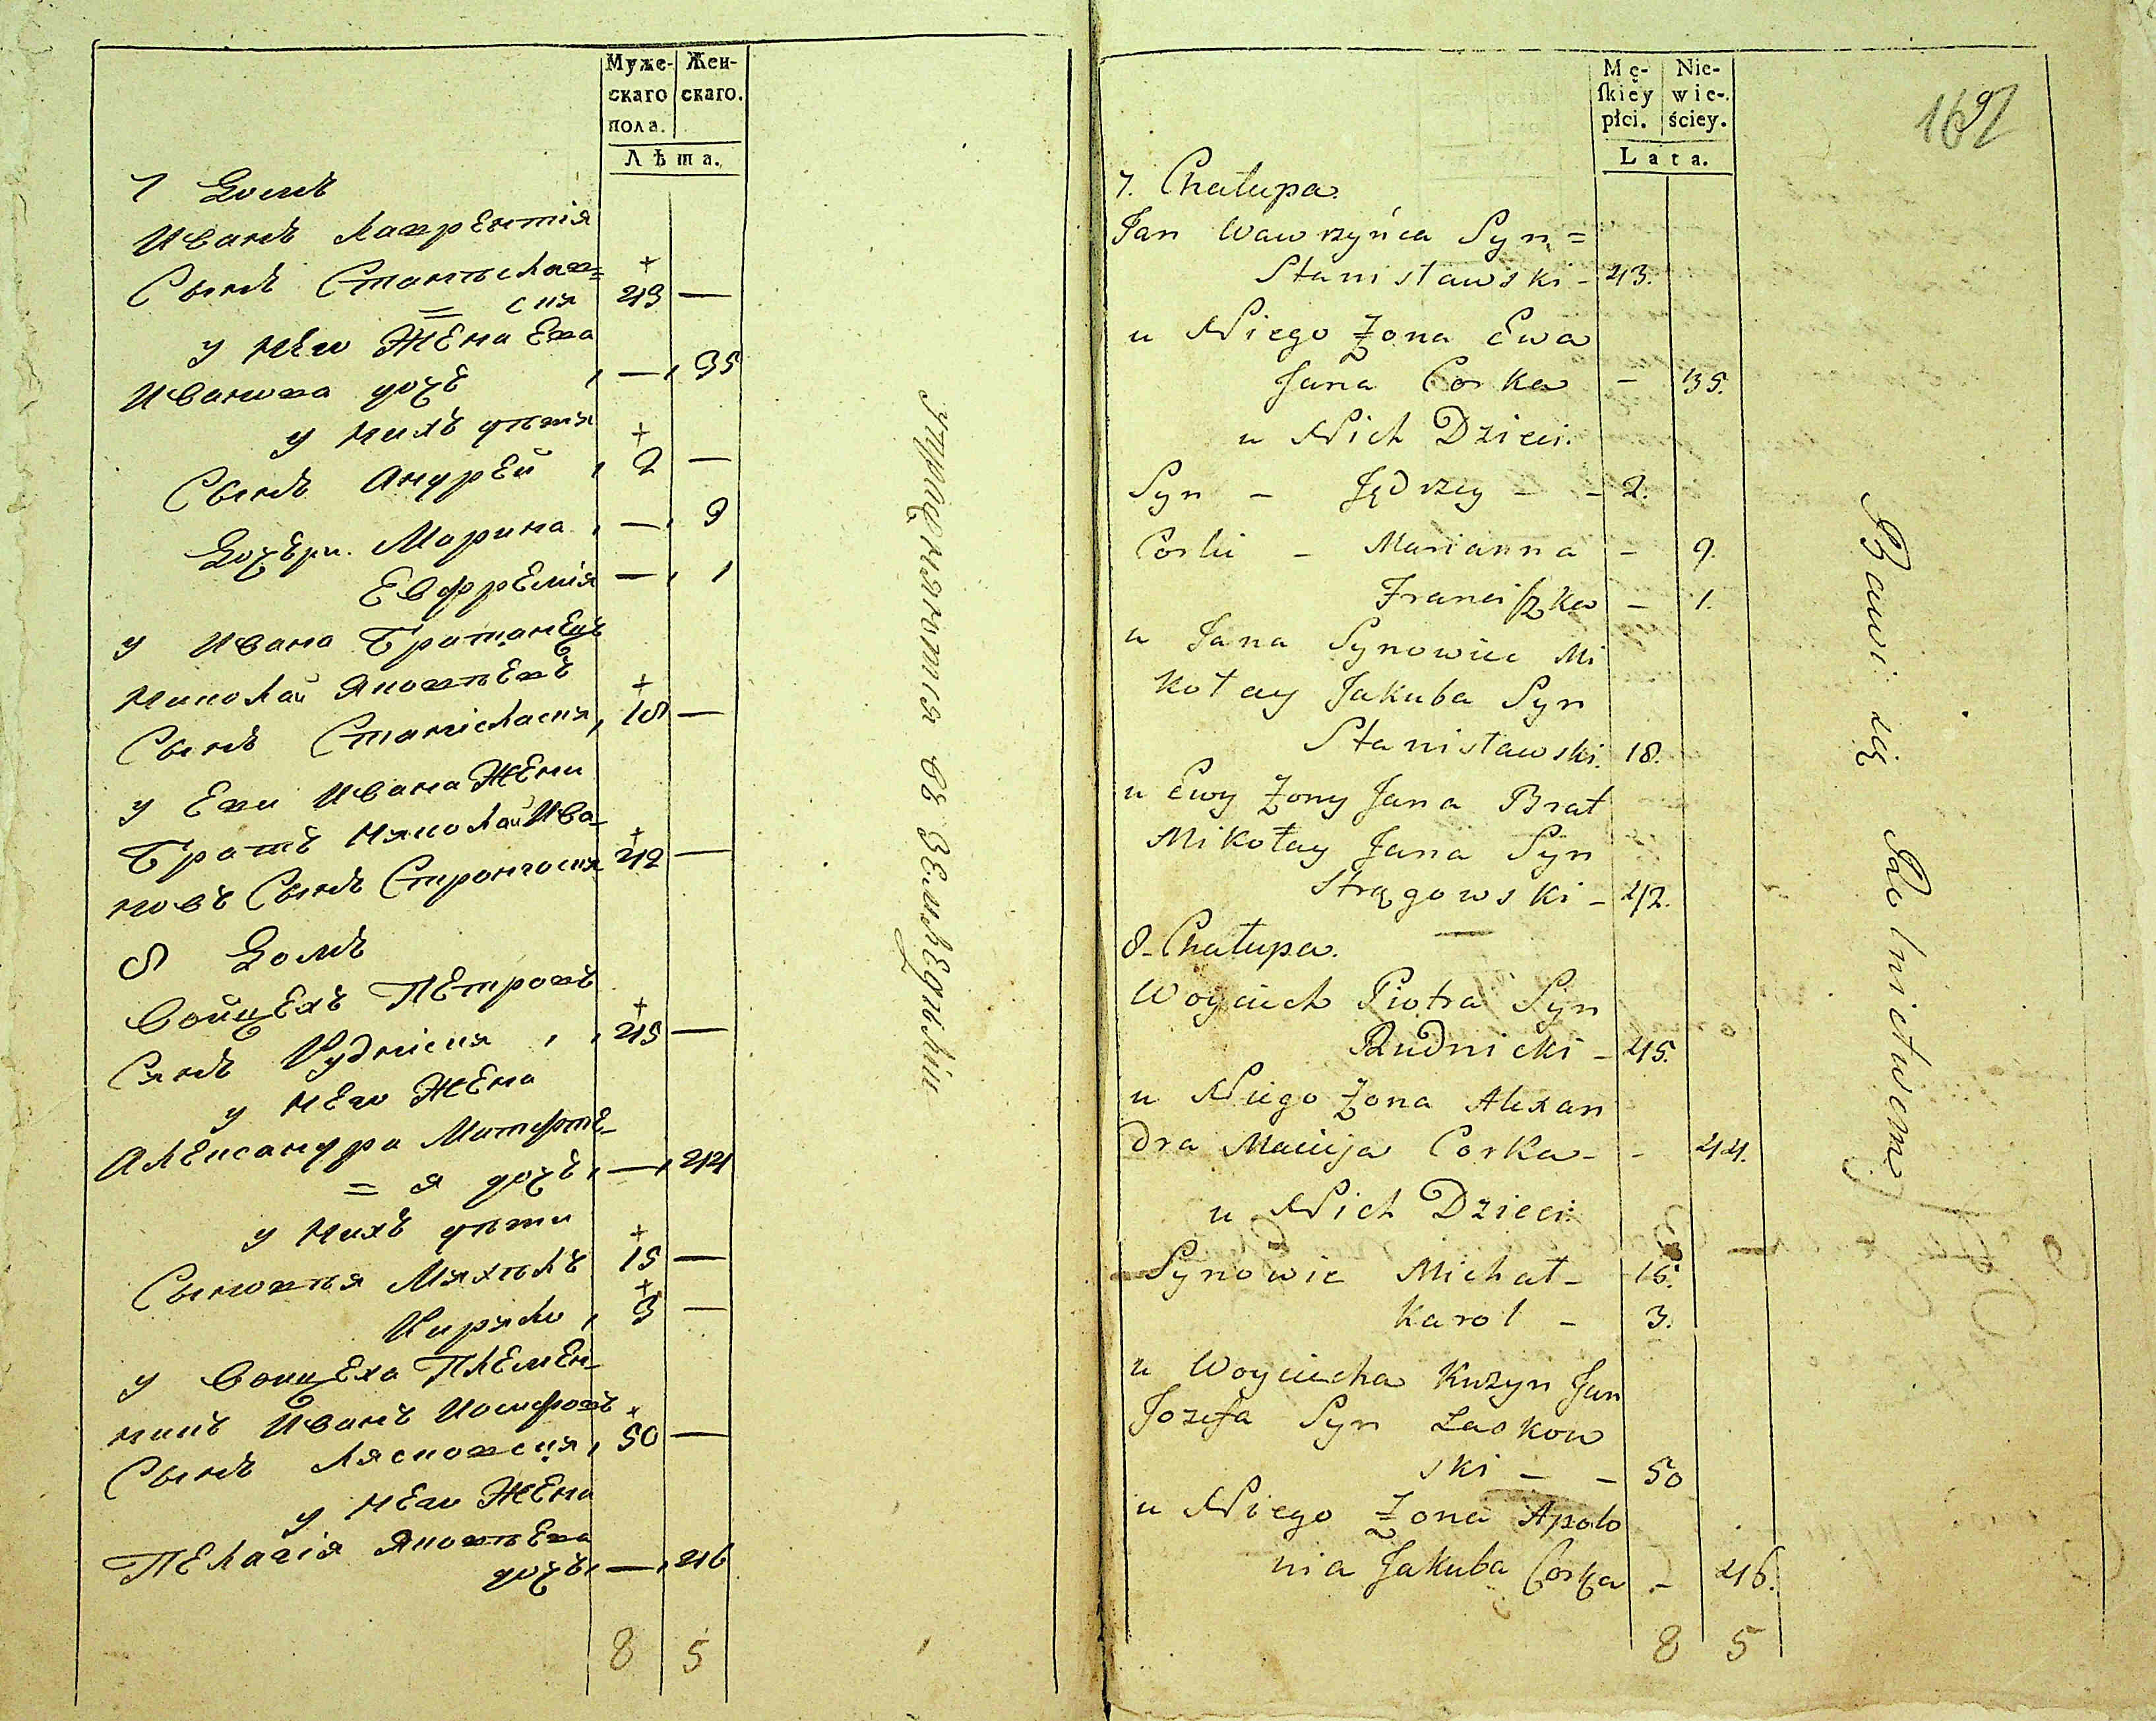 Муже-
скаго
пола.
Жен-
скаго.
Лѣта.
7 Домъ
Иванъ Лаврентія
Сынъ Станиславс=
= скя 43 —
у него Жена Ева
Иванова дочь , — , 35
у нихъ дѣтя
Сынъ Андрей , 2 —
Дочери. Марина , — , 9
Евфремія — , 1
у Ивана Братанецъ
Николай Яковлевъ
Сынъ Станіславскя , 18 —
у Еви Ивана Жени
Братъ Николай Ива-
новъ Сынъ 42 —
8 Домъ
Войцехъ Петровъ
Сынъ Рудніскя , , 45 —
у него Жена
Александра
= я дочь , — , 44
у нихъ дѣти
Сыновья 15 —
3 —
у Войцеха Племен-
никъ Иванъ Иосифовъ
Сынъ Лясковскя , 50 —
у него Жена
Пелагія Яковлева
дочь , — , 46
8 5
Упражняются въ Земледѣліи
Mę-
ſkiey
płci.
Nie-
wie-
ściey.
Lata.
169
7. Chałupa.
Jan Wawrzyńca Syn =
Stanisławski - 43.
u Niego Żona Ewa
Jana Corka - 35.
u Nich Dzieci.
Syn - Jędrzey - - 2.
Corki - Marianna - 9.
Franciszka - 1.
u Jana Synowiec Mi
kołay Jakuba Syn
Stanisławski. 18.
u Ewy Żony Jana Brat
Mikołay Jana Syn
Stręgowski - 42.
8. Chałupa.
Woyciech Piotra Syn
Rudnicki - 45.
u Niego Żona Alexan
dra Macieja Corka - - 44.
u Nich Dzieci:
Synowie Michał - 15.
Karol - 3.
u Woyciecha Kuzyn Jan
Jozefa Syn Laskow
ski - - 50
u Niego Żona Apolo
nia Jakuba Corka - 46.
8 5
Bawi się Rolnictwem